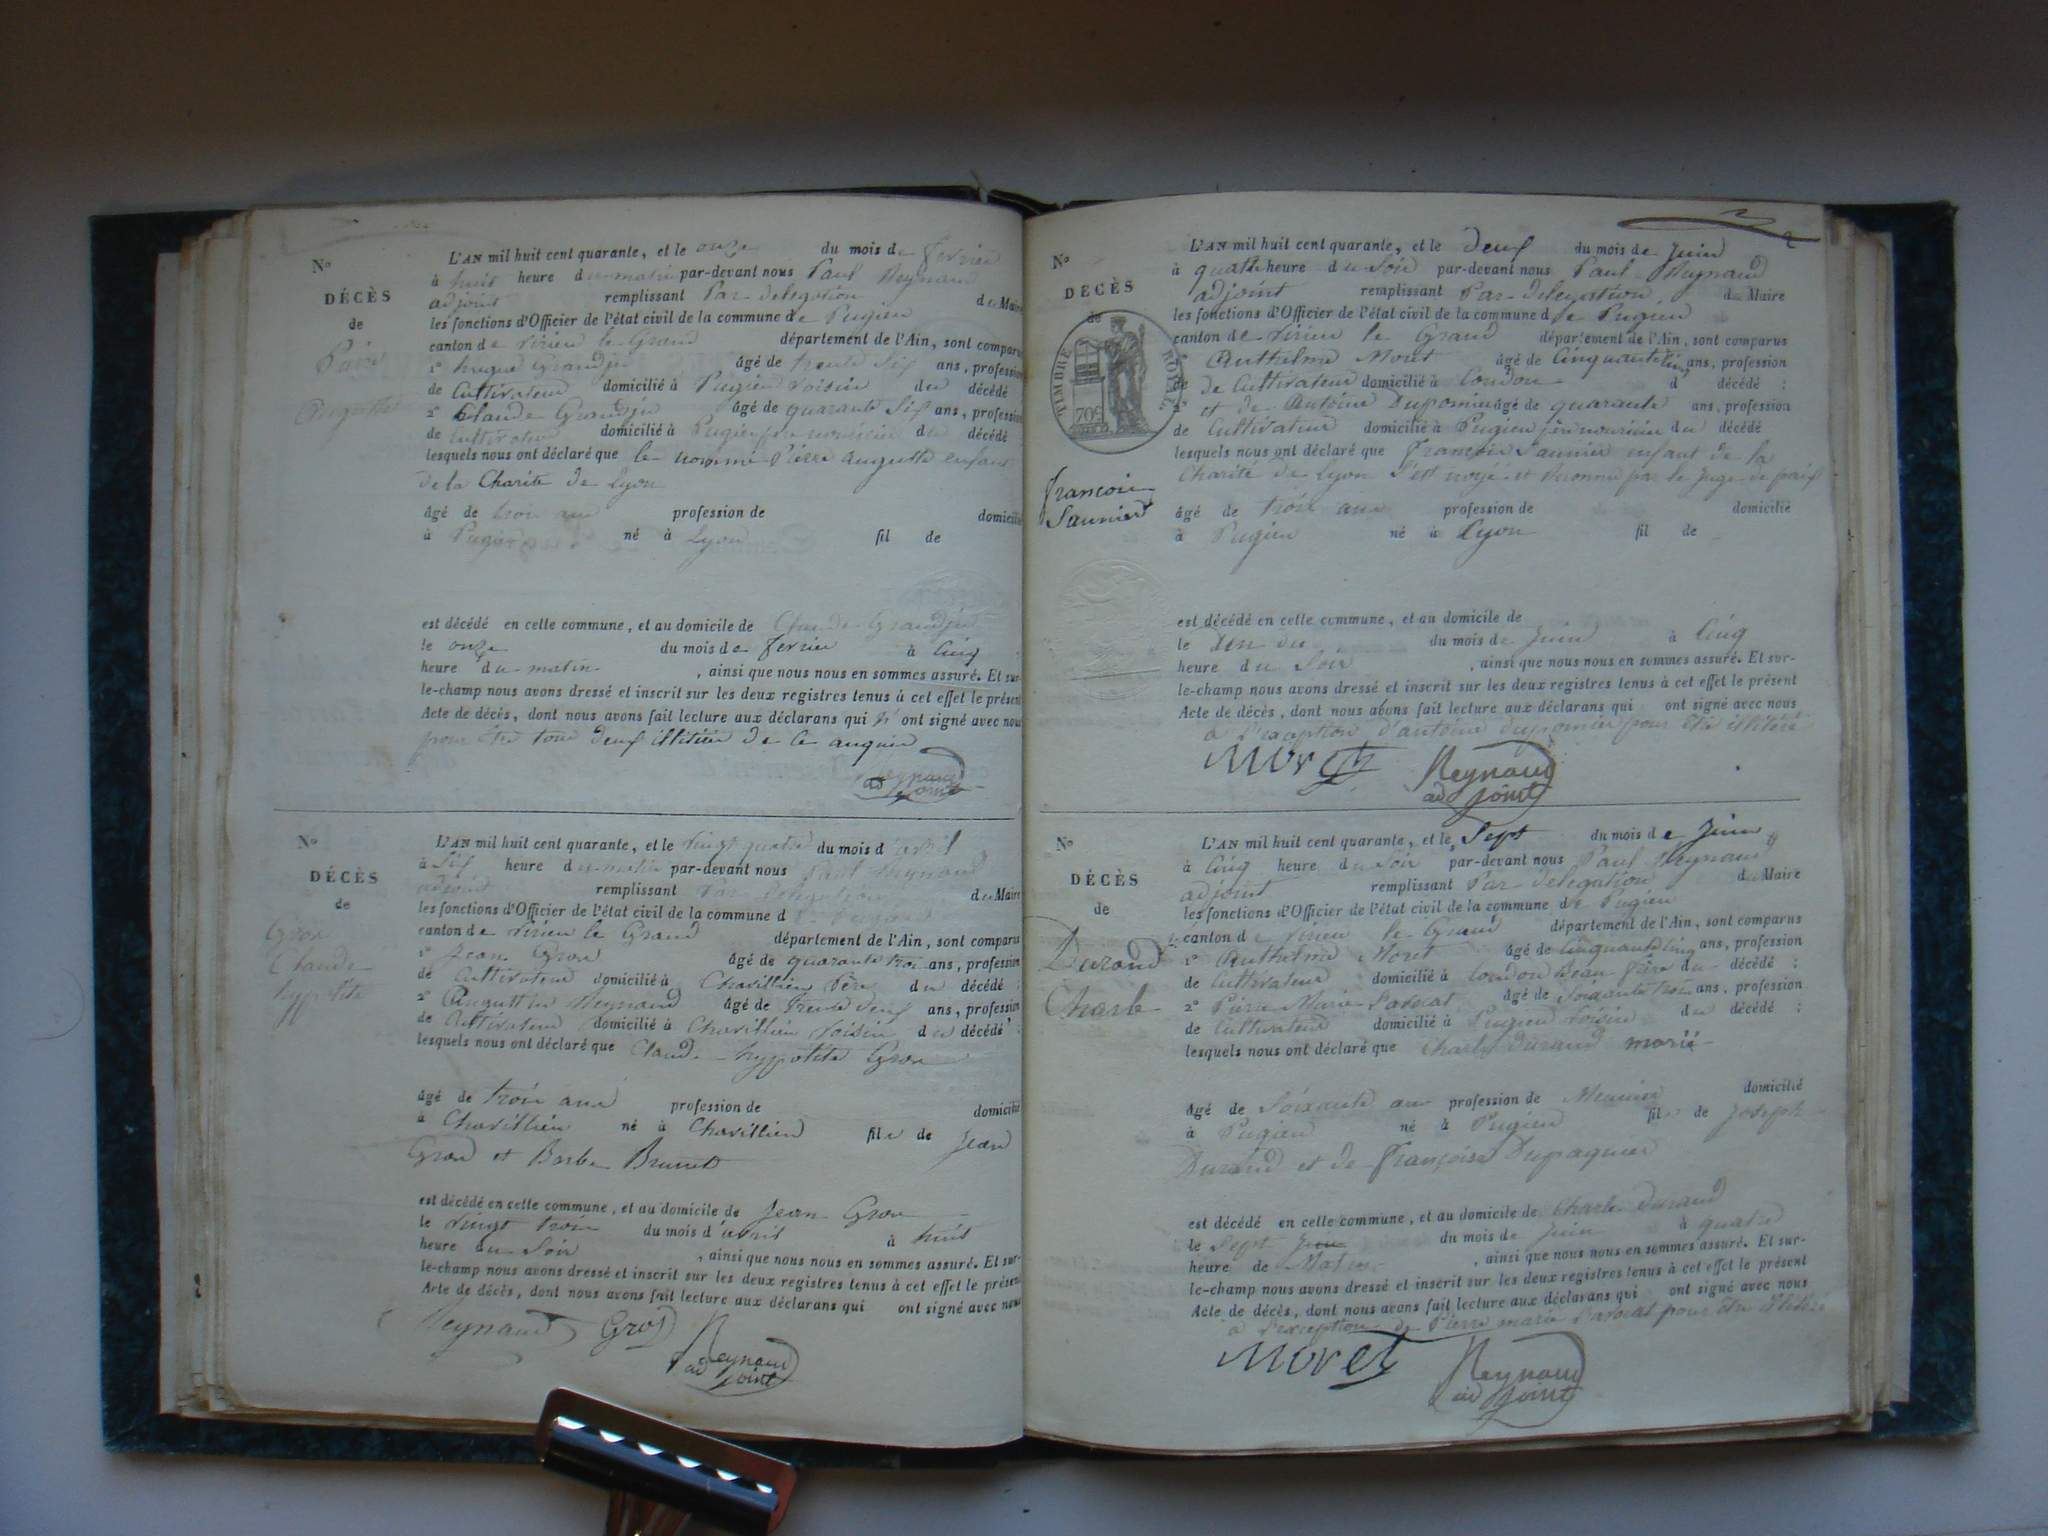 No
DÉCÈS
de
Pierre
Auguste
L'AN mil huit cent quarante, et le onze du mois de fevrier
à huit heure du matin par-devant nous Paul Reynaud
adjoint remplissant Par delegation du Maire
les fonctions d'Officier de l'état civil de la commune de Pugieu
canton de Virieu le Grand département de l'Ain, sont comparus
1º Grandjin âgé de trente Six ans, profession
de Cultivateur domicilié à Pugieu voisin du décédé
2º Claude Grandjin âgé de quarante Six ans, profession
de Cultivateur domicilié à Pugieu père nouricier du décédé
lesquels nous ont déclaré que le nommé Pierre Auguste enfant
de la Charité de Lyon
âgé de trois ans profession de domicilié
à Pugieu né à Lyon fil de
est décédé en cette commune, et au domicile de Claude Grandjin
le onze du mois de fevrier à Cinq
heure du matin , ainsi que nous nous en sommes assuré. Et sur-
le-champ nous avons dressé et inscrit sur les deux registres tenus à cet effet le présent
Acte de décès, dont nous avons fait lecture aux déclarans qui n' ont signé avec nous
pour être tous deux de ce
Reynaud
adjoint
No
DÉCÈS
de
Gros
Claude
hypolite
L'AN mil huit cent quarante, et le vingt quatre du mois d'avril
à Six heure du matin par-devant nous Paul Reynaud
adjoint remplissant Par delegation du Maire
les fonctions d'Officier de l'état civil de la commune de Pugieu
canton de Virieu le Grand département de l'Ain, sont comparus
1º Jean Gros âgé de quarante trois ans, profession
de Cultivateur domicilié à Chavillieu Père du décédé :
2º Augustin Reynaud âgé de trente deux ans, profession
de Cultivateur domicilié à Chavillieu voisin du décédé :
lesquels nous ont déclaré que Claude hypolite Gros
âgé de trois ans profession de domicilié
à Chavillieu né à Chavillieu fils de Jean
Gros et Barbe Brunet
est décédé en cette commune, et au domicile de Jean Gros
le vingt trois du mois d'avril à huit
heure du Soir , ainsi que nous nous en sommes assuré. Et sur-
le-champ nous avons dressé et inscrit sur les deux registres tenus à cet effet le présent
Acte de décès, dont nous avons fait lecture aux déclarans qui ont signé avec nous
Reynaud Gros
Reynaud
adjoint
No
DÉCÈS
de
TIMBRE ROYAL
70c
François
Saunier
L'AN mil huit cent quarante, et le deux du mois de Juin
à quatre heure du Soir par-devant nous Paul Reynaud
adjoint remplissant Par delegation du Maire
les fonctions d'Officier de l'état civil de la commune de Pugieu
canton de Virieu le Grand département de l'Ain, sont comparus
Anthelme Moret âgé de Cinquante Cinq ans, profession
de Cultivateur domicilié à Condon d décédé :
et de Antoine Dupomier âgé de quarante ans, profession
de Cultivateur domicilié à Pugieu père nouricier du décédé
lesquels nous ont déclaré que François Saunier enfant de la
Charité de Lyon s'est noyé et reconnu par le Juge de paix
âgé de trois ans profession de domicilié
à Pugieu né à Lyon fil de
est décédé en cette commune, et au domicile de
le du mois de Juin à Cinq
heure du Soir , ainsi que nous nous en sommes assuré. Et sur-
le-champ nous avons dressé et inscrit sur les deux registres tenus à cet effet le présent
Acte de décès, dont nous avons fait lecture aux déclarans qui ont signé avec nous
a l'exception d'antoine dupomier pour être illitéré
Moret Reynaud
adjoint
No
DÉCÈS
de
Durand
Charle
L'AN mil huit cent quarante, et le Sept du mois de Juin
à Cinq heure du Soir par-devant nous Paul Reynaud
adjoint remplissant Par delegation du Maire
les fonctions d'Officier de l'état civil de la commune de Pugieu
canton de Virieu le Grand département de l'Ain, sont comparus
1º Anthelme Moret âgé de Cinquante Cinq ans, profession
de Cultivateur domicilié à Condon Beau frère du décédé :
2º Pierre Marie Savarat âgé de Soixante trois ans, profession
de Cultivateur domicilié à Pugieu voisin du décédé :
lesquels nous ont déclaré que Charle Durand marié
âgé de Soixante ans profession de Meunier domicilié
à Pugieu né à Pugieu fils de Joseph
Durand et de Françoise Dupaquier
est décédé en cette commune, et au domicile de Charle Durand
le Sept du mois de Juin à quatre
heure de Matin , ainsi que nous nous en sommes assuré. Et sur-
le-champ nous avons dressé et inscrit sur les deux registres tenus à cet effet le présent
Acte de décès, dont nous avons fait lecture aux déclarans qui ont signé avec nous
a l'exception de Pierre marie Savarat pour être illitéré
Moret Reynaud
adjoint